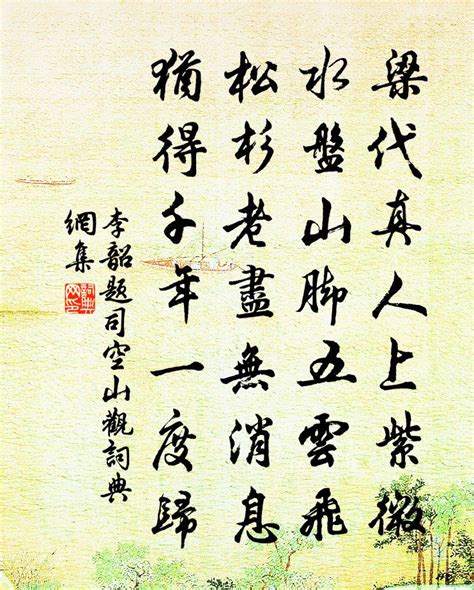 梁代真人上紫微
水盤山腳五雲飛
松杉老盡無消息
猶得千年一度歸
李韶題司空山觀詞典
網集